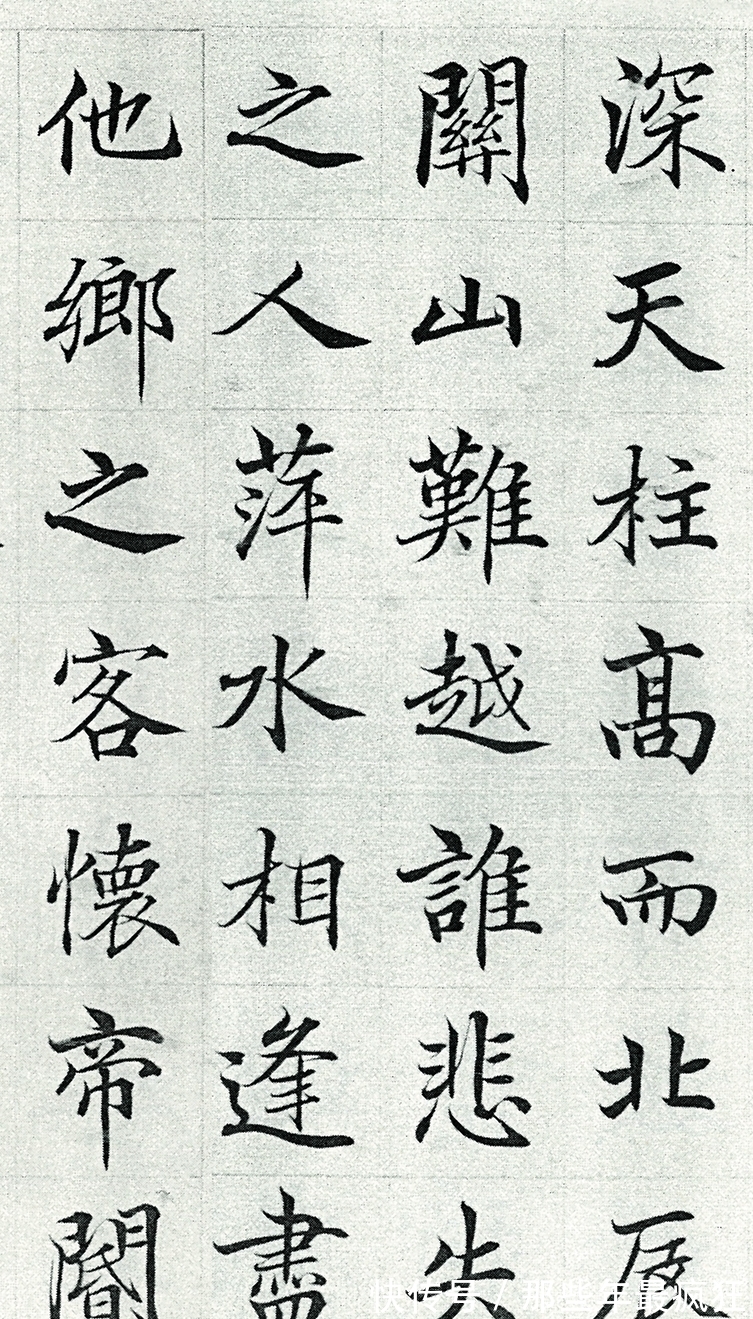 深天柱髙而北辰
關山難越誰悲失
之人萍水相逢盡
他鄉之客懐帝閽
快传号 / 那些年最疯狂